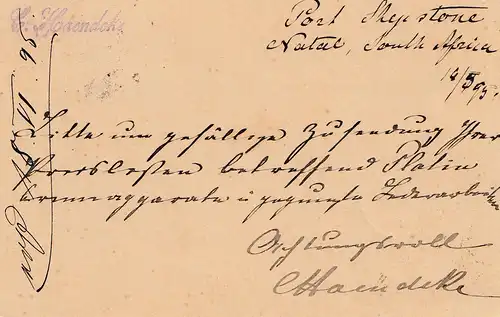 C. Haendcke
Port Shepstone
Natal, South Africa
14/5 95.
Bitte um gefällige Zusendung Ihrer
Preislisten betreffend Platin
Brennapparate u gepunzte Lederarbeiten
Achtungsvoll
CHaendcke